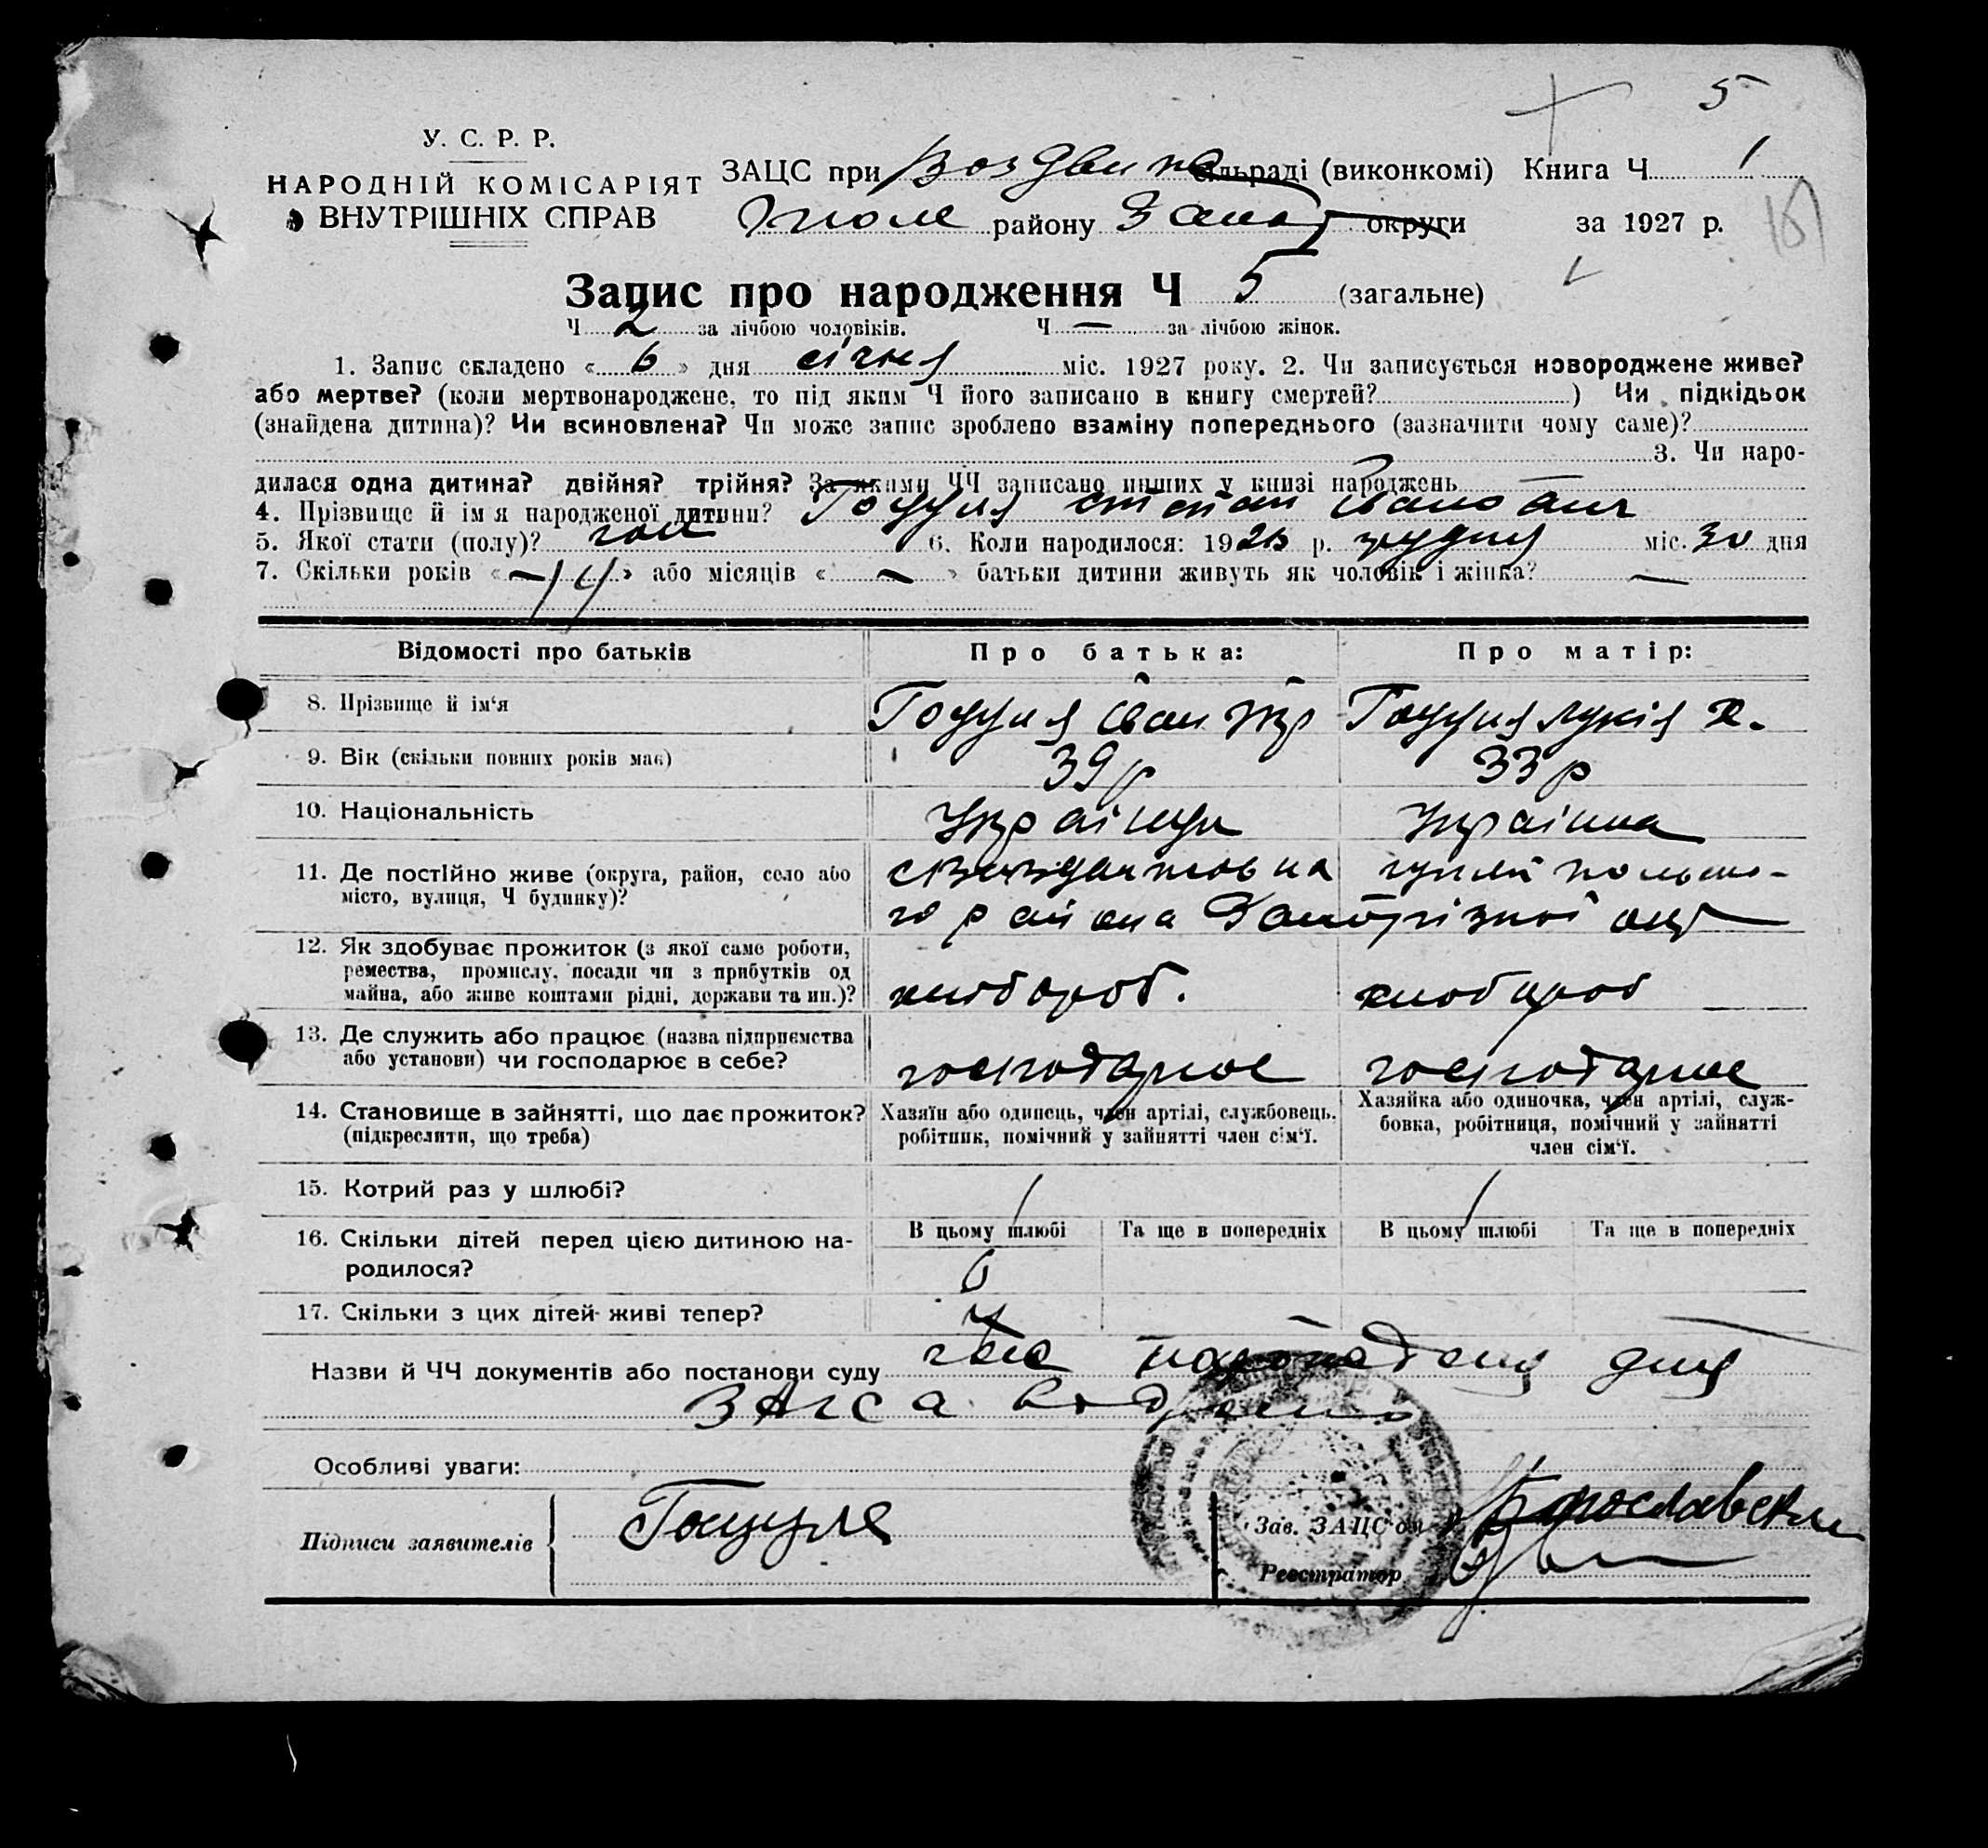 5
У. С. Р. Р.
НАРОДНІЙ КОМІСАРІЯТ
ВНУТРІШНІХ СПРАВ
ЗАЦС при Воздвиж сільраді (виконкомі) Книга Ч. 1
району Запор округи за 1927 р.
Запис про народження Ч 5 (загальне)
Ч. 2 за лічбою чоловіків. Ч. — за лічбою жінок.
1. Запис складено « 6 » дня січня міс. 1927 року. 2. Чи записується новороджене живе?
або мертве? (коли мертвонароджене, то під яким Ч його записано в книгу смертей? ) Чи підкідьок
(знайдена дитина)? Чи всиновлена? Чи може запис зроблено взаміну попереднього (зазначити чому саме)?
3. Чи наро-
дилася одна дитина? двійня? трійня? За якими ЧЧ записано инших у книзі народжень
4. Прізвище й ім я народженої дитини? Степан Іванович
5. Якої стати (полу)? чол 6. Коли народилося: 1926 р. грудня міс. 30 дня
7. Скільки років « —14 » або місяців « — » батьки дитини живуть як чоловік і жінка? —
Відомості про батьків
Про батька:
Про матір:
8. Прізвище й ім‘я
Іван
Лукія
9. Вік (скільки повних років має)
39 р
33 р
10. Національність
Українец
Українка
11. Де постійно живе (округа, район, село або
місто, вулиця, Ч будинку)?
гуляй польсько-
го района Запорізької окр
12. Як здобуває прожиток (з якої саме роботи,
ремества, промислу, посади чи з прибутків од
майна, або живе коштами рідні, держави та ин.)?
хлібороб.
хлібороб
13. Де служить або працює (назва підприємства
або установи) чи господарює в себе?
господарює
господарює
14. Становище в зайнятті, що дає прожиток?
(підкреслити, що треба)
Хазяїн або одинець, член артілі, службовець,
робітник, помічний у зайнятті член сім‘ї.
Хазяйка або одиночка, член артілі, служ-
бовка, робітниця, помічний у зайнятті
член сім‘ї.
15. Котрий раз у шлюбі?
1
1
16. Скільки дітей перед цією дитиною на-
родилося?
В цьому шлюбі
Та ще в попередніх
В цьому шлюбі
Та ще в попередніх
6
17. Скільки з цих дітей живі тепер?
4
Назви й ЧЧ документів або постанови суду
ЗАГСа
Особливі уваги:
Підписи заявителів
Зав. ЗАЦС‘ом
Реєстратор